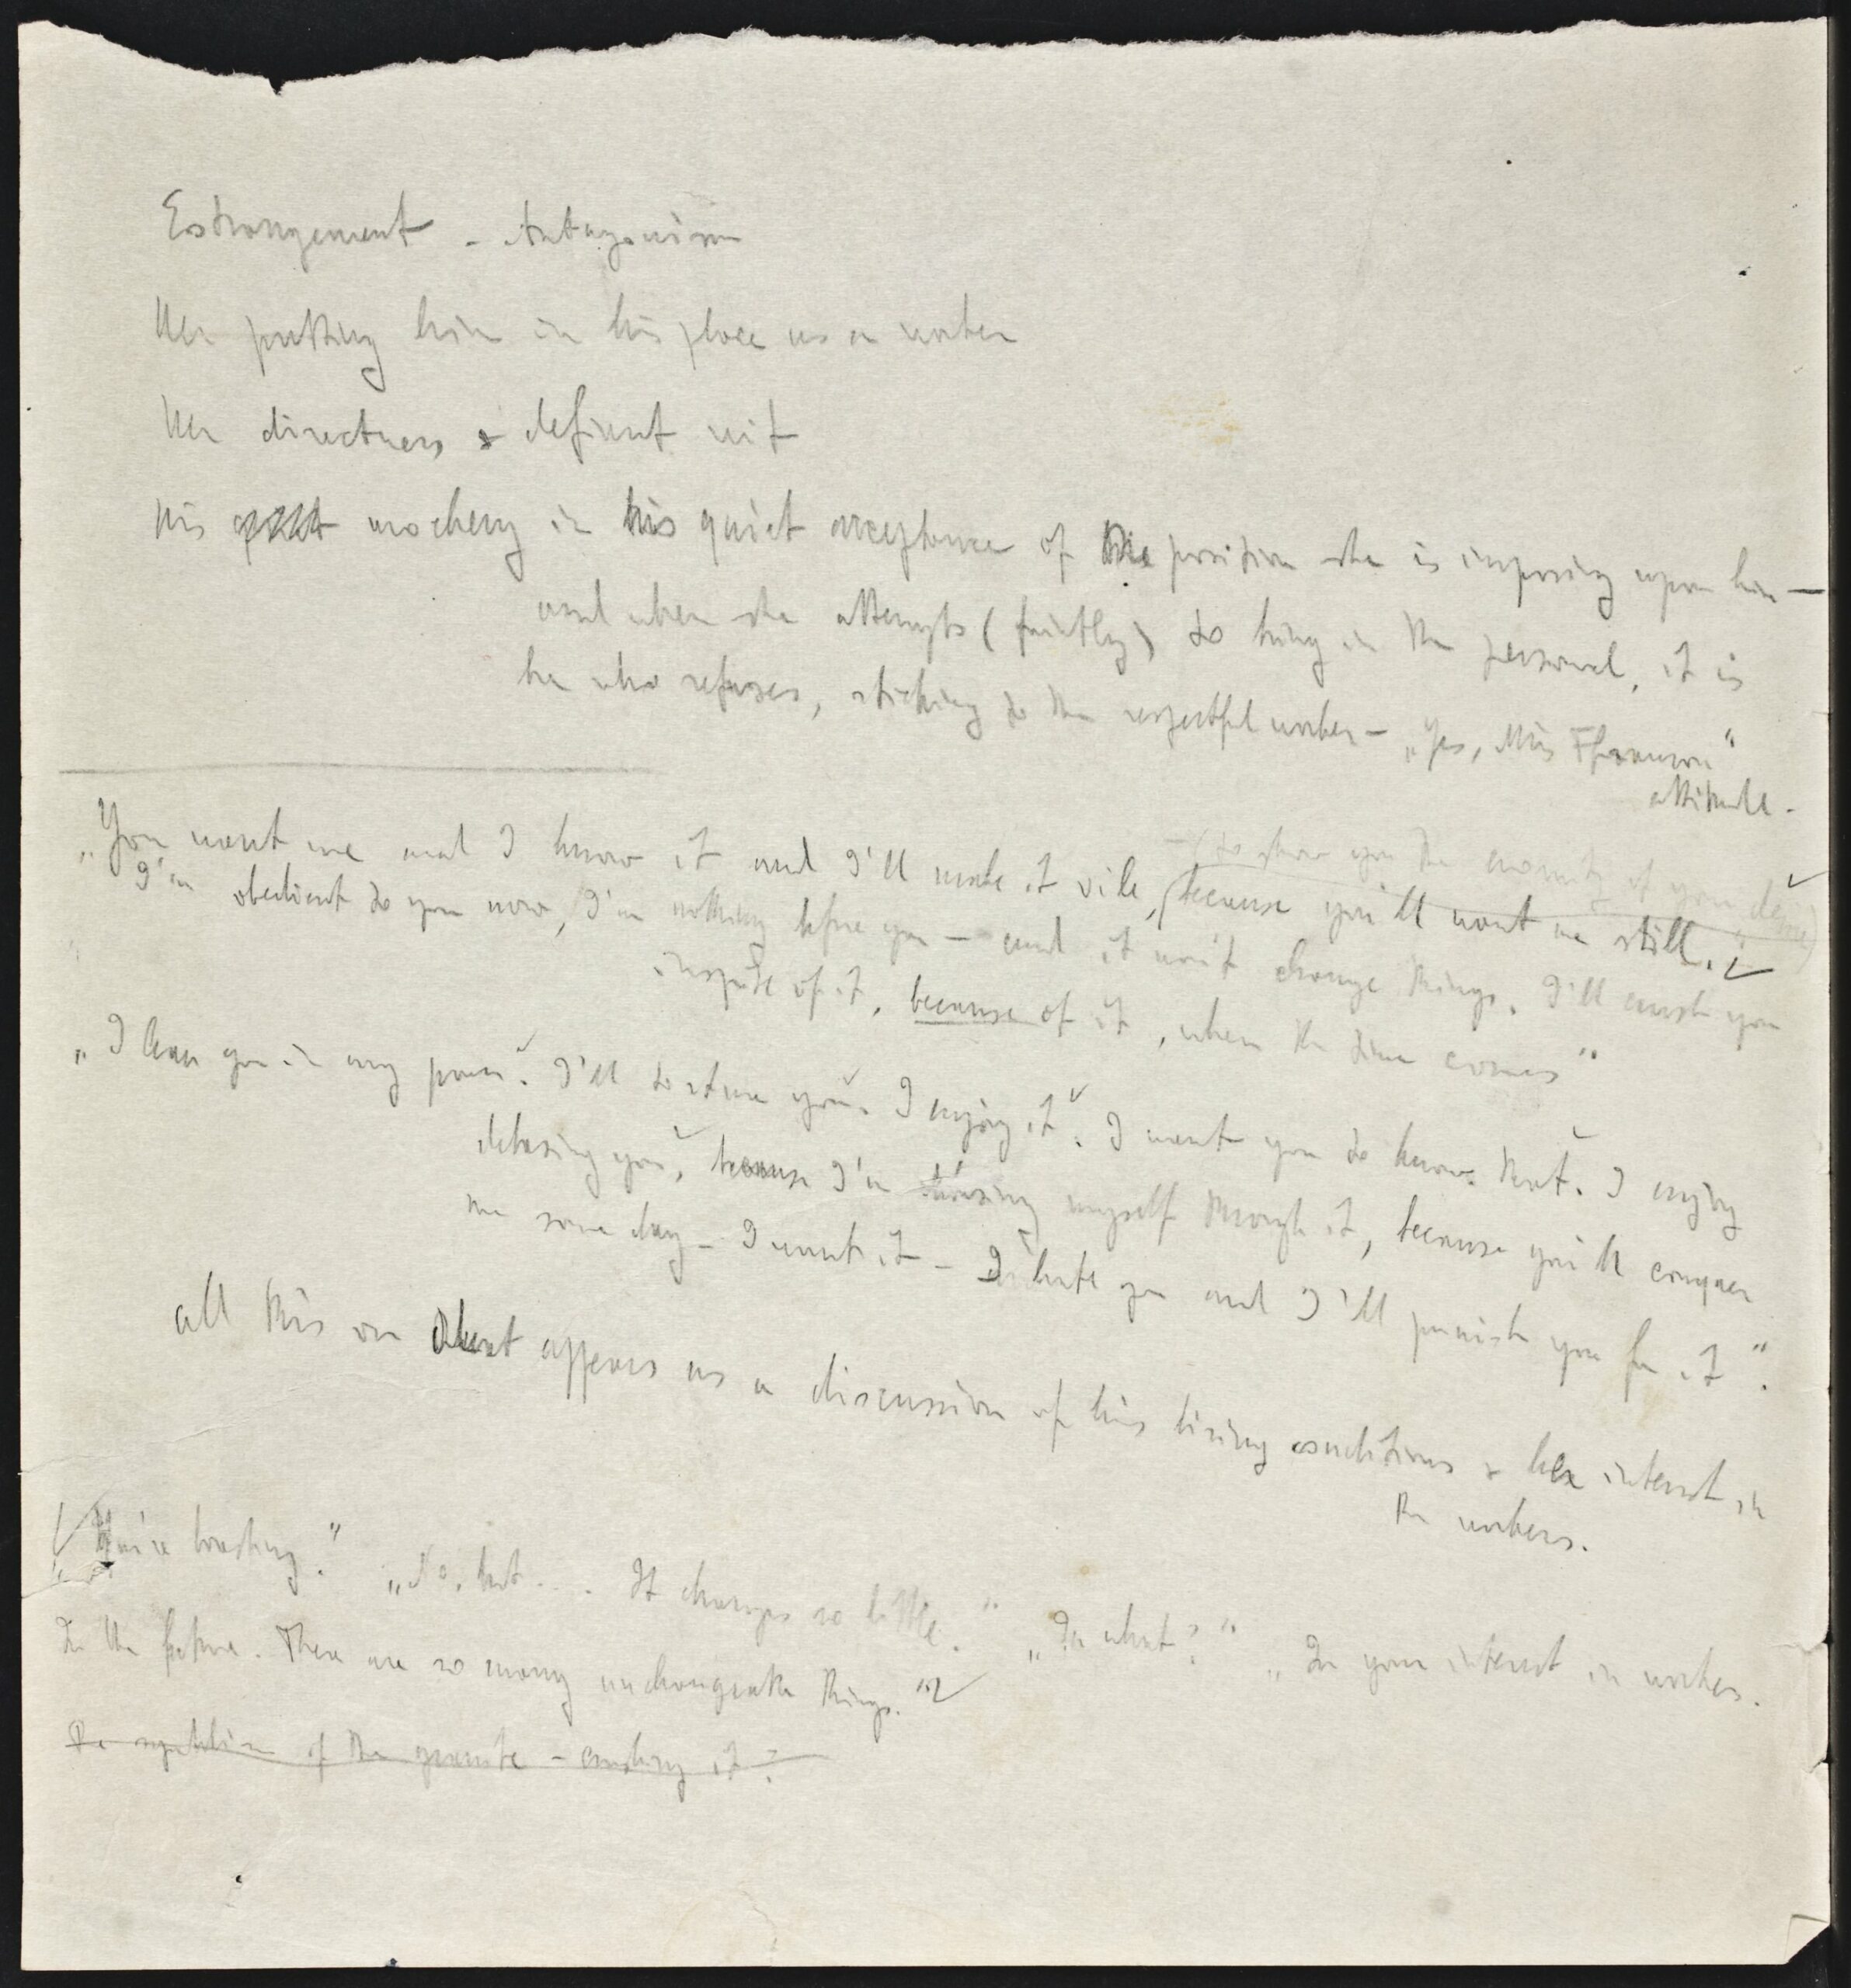 Estrangement - Antagonism
Her putting him in his place as a worker
Her directness & defiant wit
His mockery in his quiet acceptance of the position she is imposing upon him —
and when she attempts (faintly) to bring in the personal, it is
he who refuses, sticking to the respectful worker — „Yes, Miss Francon"
attitude.
— (to show you the enormity of your desire)
„You want me and I know it and I'll make it vile, (because you'll want me still."
I'm obedient to you now, I'm nothing before you — and it won't change things. I'll crush you
inspite of it, because of it, when the time comes"
„I have you in my power. I'll torture you. I enjoy it. I want you to know that. I enjoy
debasing you, because I'm debasing myself through it, because you'll conquer
me some day — I want it — I hate you and I'll punish you for it".
all this in what appears as a discussion of his living conditions & her interest in
the workers.
„You're boasting." „No, but... It changes so little." „In what?" „In your interest in workers.
In the future. There are so many unchangeable things."
The symbolism of the granite - crushing it?